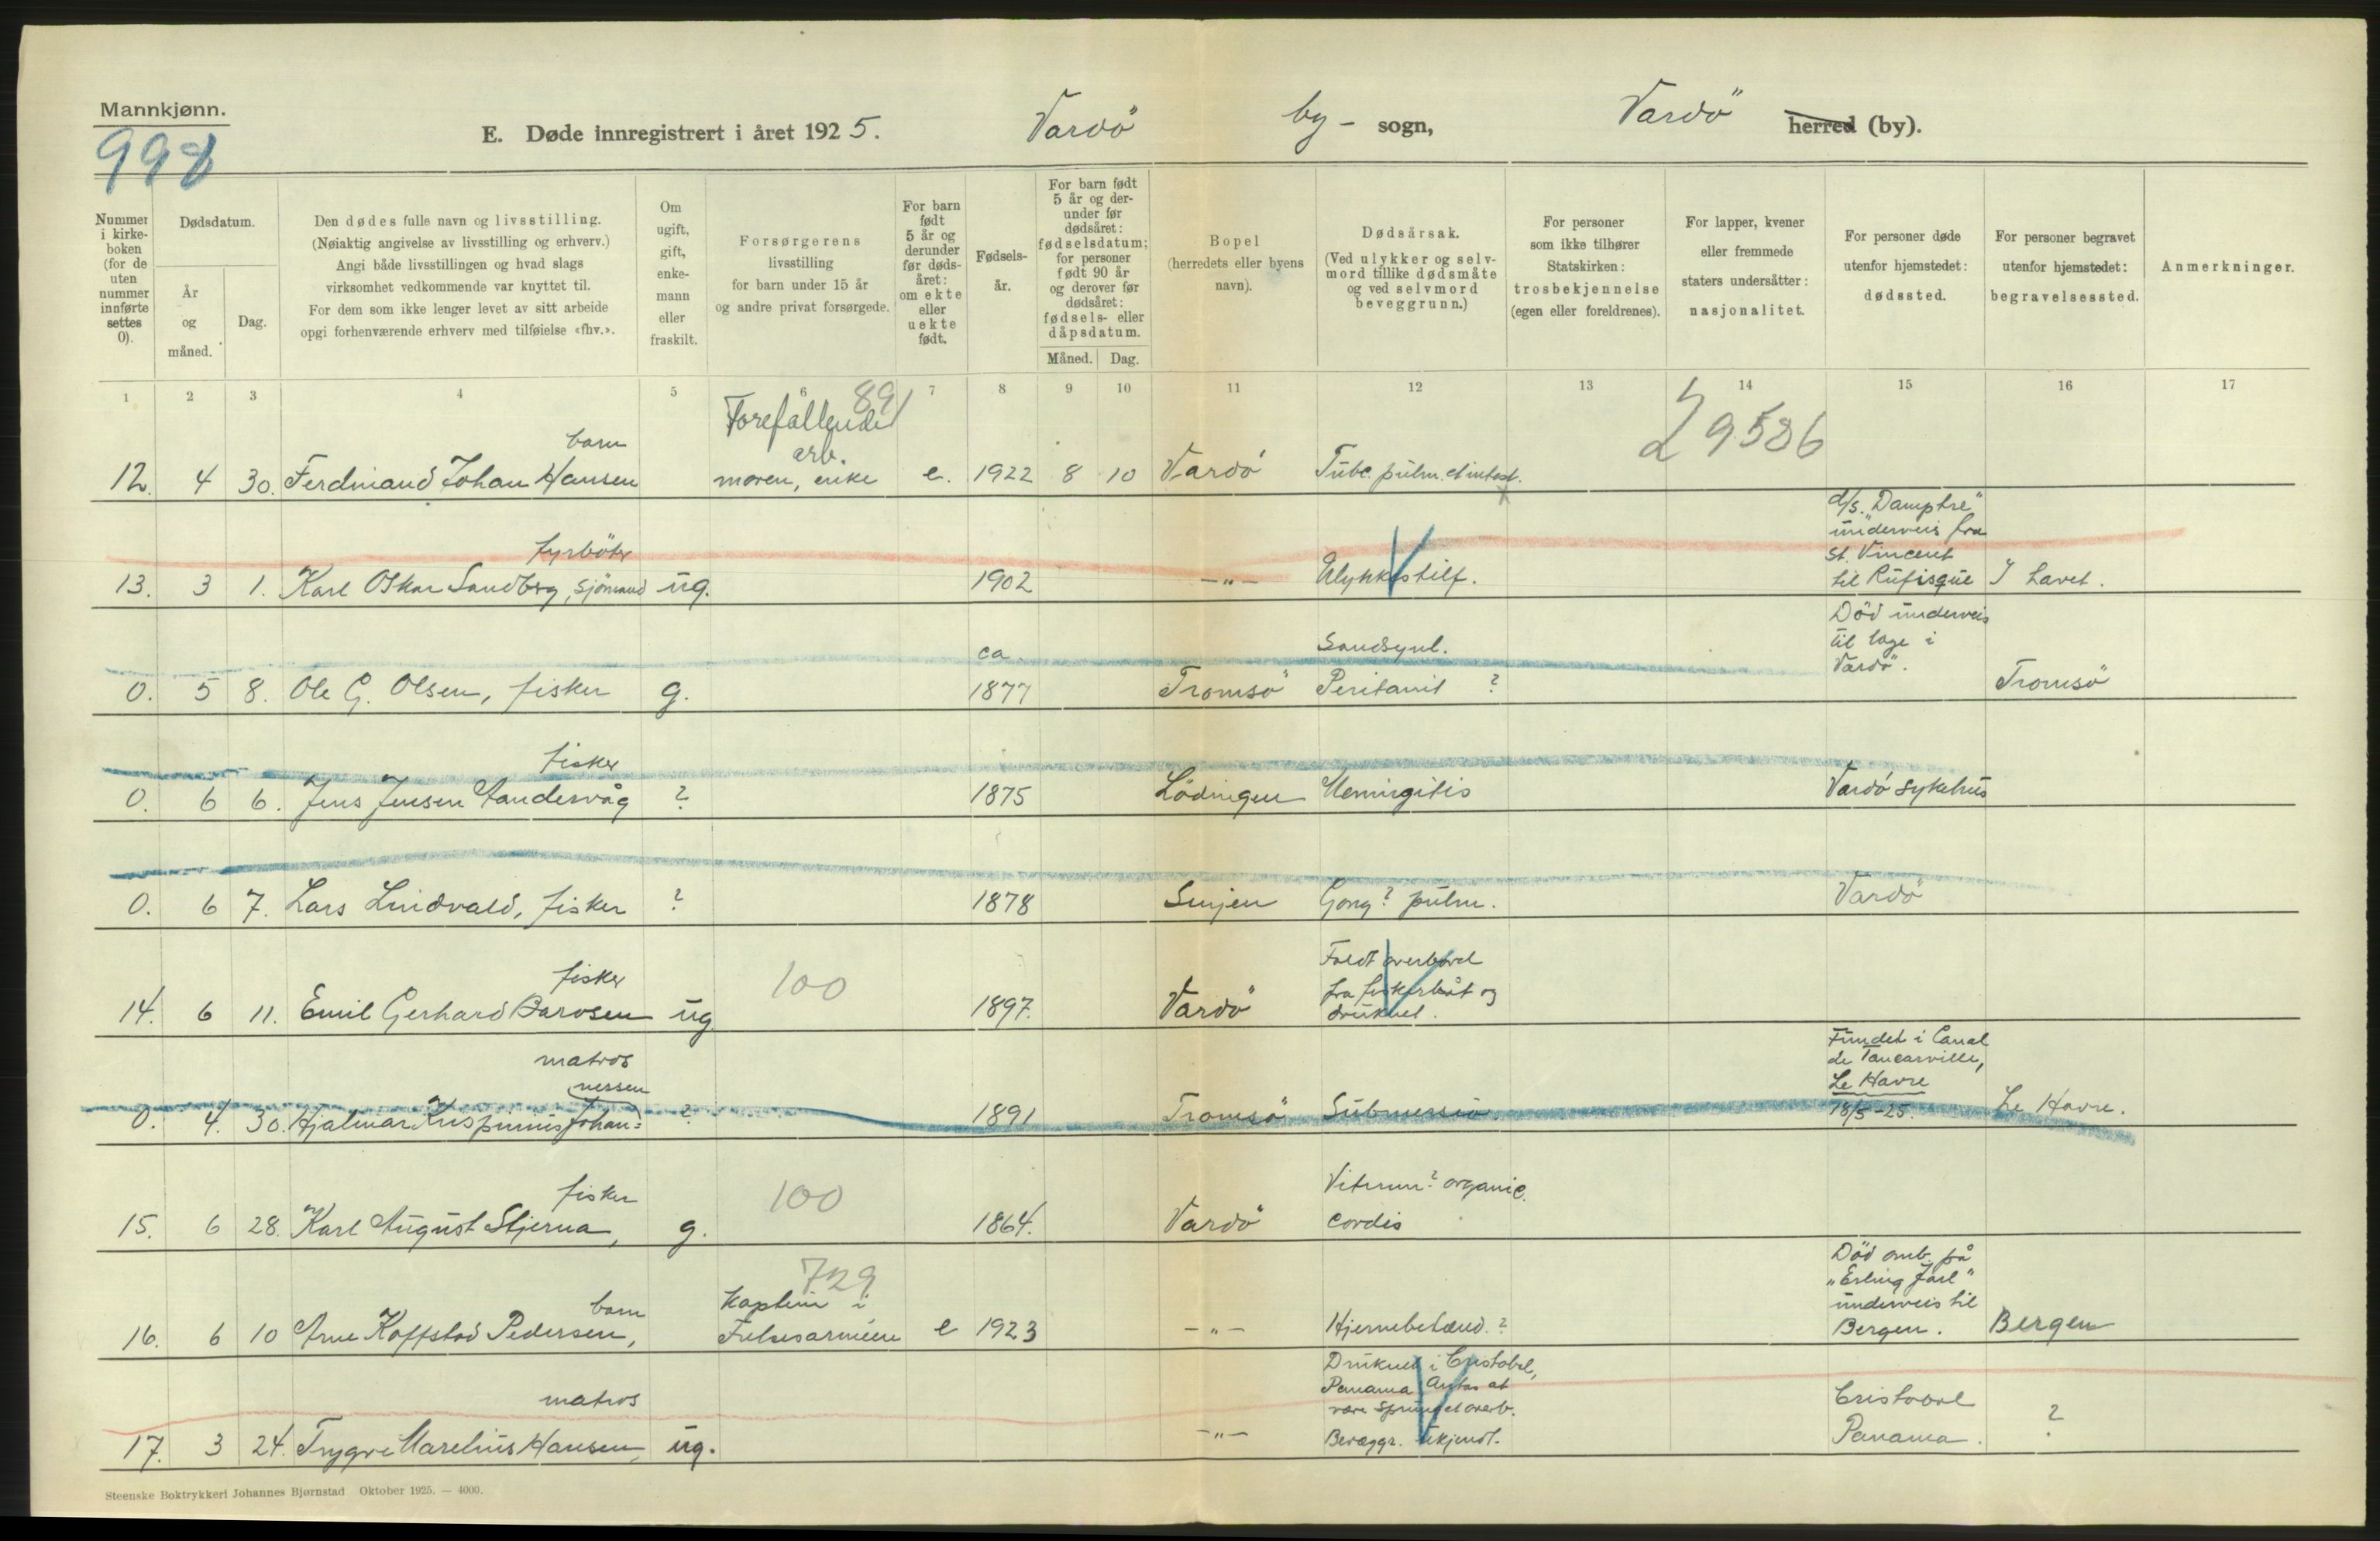 Mannkjønn.
998
E. Døde innregistrert i året 1925.
Vardö by- sogn, Vardö herred (by).
Nummer i kirkeboken (for de uten nummer innførte settes 0).
Dødsdatum.
År og måned.
Dag.
Den dødes fulle navn og livsstilling.
(Nøiaktig angivelse av livsstilling og erhverv.)
Angi både livsstillingen og hvad slags
virksomhet vedkommende var knyttet til.
For dem som ikke lenger levet av sitt arbeide
opgi forhenværende erhverv med tilføielse «fhv.».
Om ugift, gift, enkemann eller fraskilt.
Forsørgerens
livsstilling
for barn under 15 år
og andre privat forsørgede.
For barn født 5 år og derunder før dødsåret: om ekte eller uekte født.
Fødselsår.
For barn født 5 år og derunder før dødsåret: fødselsdatum; for personer født 90 år og derover før dødsåret: fødsels- eller dåpsdatum.
Måned. Dag.
Bopel
(herredets eller byens
navn).
Dødsårsak.
(Ved ulykker og selvmord tillike dødsmåte og ved selvmord beveggrunn.)
For personer
som ikke tilhører
Statskirken:
trosbekjennelse
(egen eller foreldrenes).
For lapper, kvener
eller fremmede
staters undersåtter:
nasjonalitet.
For personer døde
utenfor hjemstedet:
dødssted.
For personer begravet
utenfor hjemstedet:
begravelsessted.
Anmerkninger.
1 2 3 4 5 6 7 8 9 10 11 12 13 14 15 16 17
891
29586
Forefallende
barn arb.
12. 4 30. Ferdinand Johan Hansen moren, enke e. 1922 8 10 Vardö Tubc. pulm. et intest.
d/s. "Damptre"
underveis fra
fyrböter St. Vincent
13. 3 1. Karl Oskar Sandberg, sjömand ug. 1902 -"- Ulykkestilf. til Rufisque I havet.
Död underveis
ca. Sandsynl. til læge i
Vardö.
0. 5 8. Ole G. Olsen, fisker g. 1877 Tromsö Peritonit ? Tromsö
fisker
0. 6 6. Jens Jensen Sandervåg ? 1875 Lödingen Meningitis Vardö sykehus
0. 6 7. Lars Lindvald, fisker ? 1878 Senjen Gong? pulm. Vardö
fisker 100 Faldt overbord
fra fiskerbåt og
14. 6 11. Emil Gerhard Barosen ug 1897. Vardö druknet.
matros Fundet i Canal
de Tancarville,
nessen Le Havre
0. 4. 30. Hjalmar Krispinus Johan= ? 1891 Tromsö Submersio. 18/5-25. Le Havre.
fisker 100 Vitium? organic.
15. 6 28. Karl August Stjerna, g. 1864. Vardö cordis
729 Död omb. på
"Erling Jarl"
barn Kaptein i underveis til
16. 6 10 Arne Koffstad Pedersen, Frelsesarméen e 1923 -"- Hjernebetænd. ? Bergen. Bergen
Druknet i Cristobal,
Panama. Antas at
matros være sprunget overb. Cristobal
17. 3 24. Trygve Marelius Hansen, ug. -"- Beveggr. ukjendt. Panama. ?
Steenske Boktrykkeri Johannes Bjørnstad Oktober 1925. — 4000.